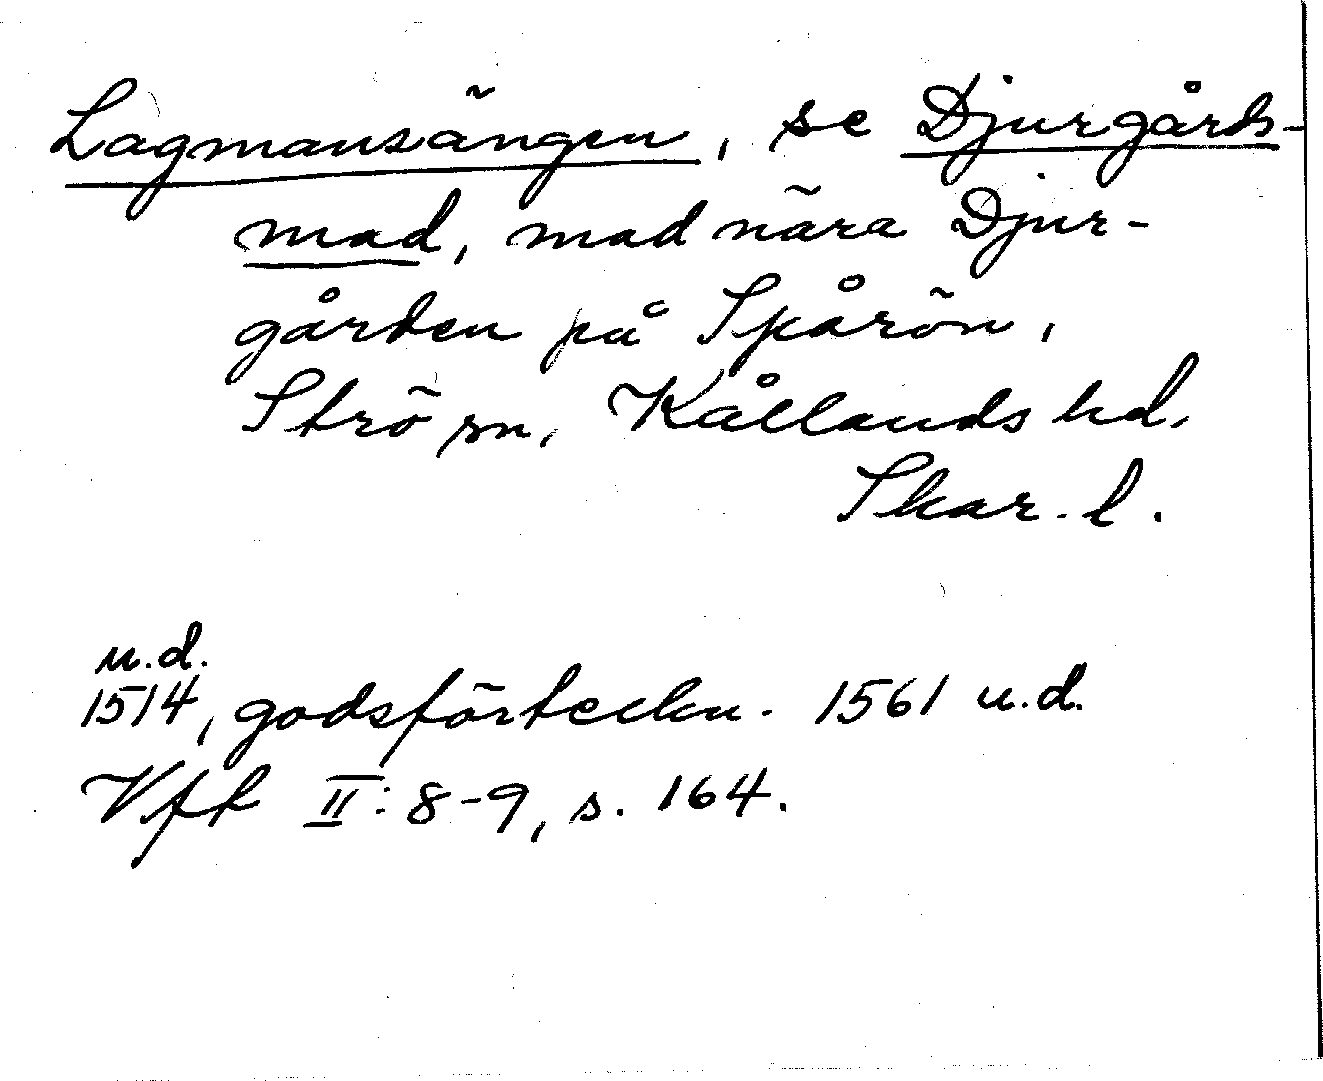 Lagmansängen, se Djurgårds-
mad, mad nära Djur-
gården på Spårön,
Strö sn, Kållands hd,
Skar. l.
u.d.
1514, godsförteckn. 1561 u.d.
Vft II: 8-9, s. 164.